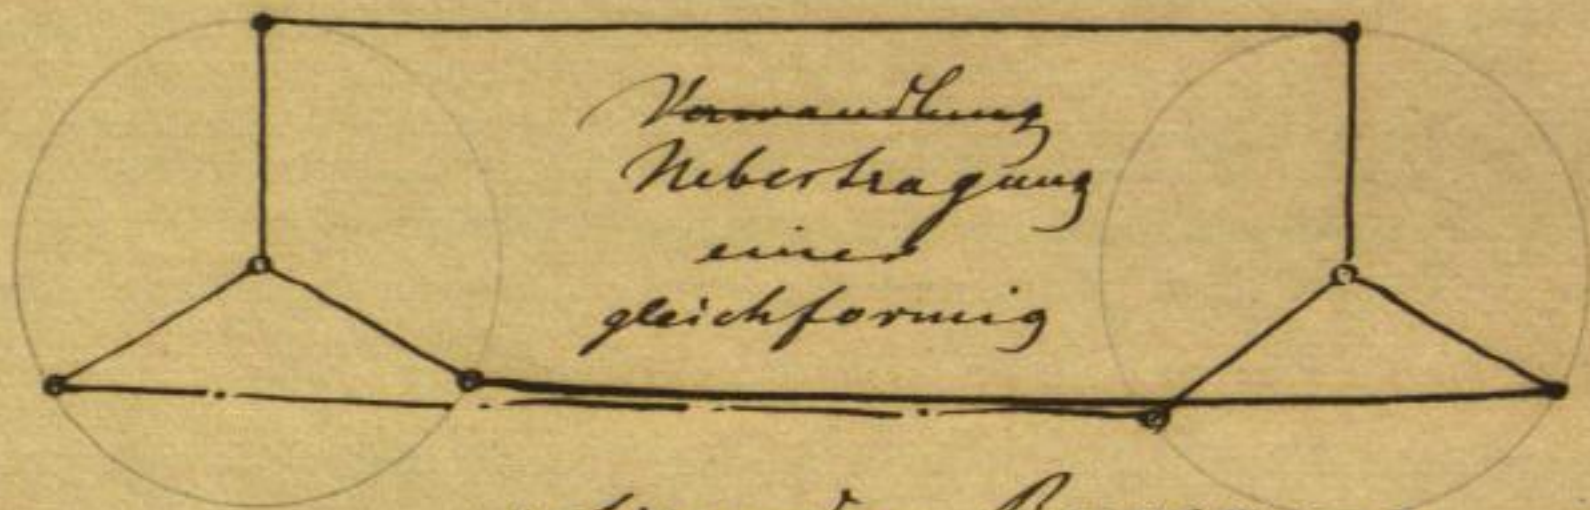 Verwandlung
Uebertragung
einer
gleichformig